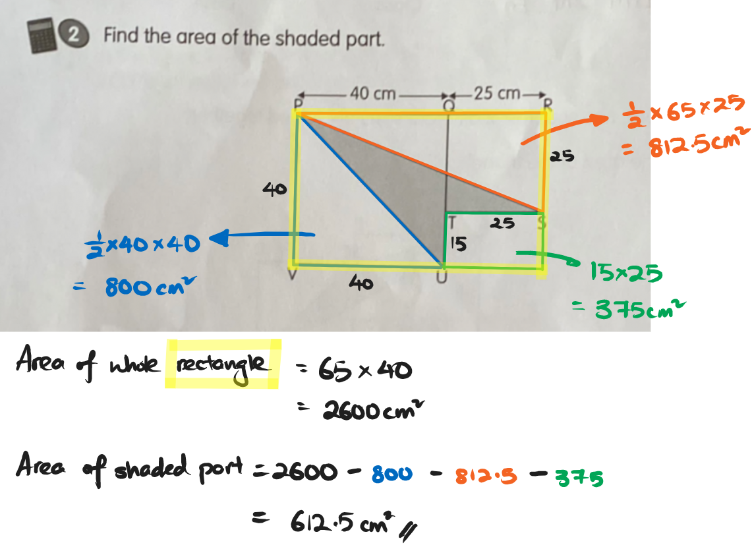 2 Find the area of the shaded part.
40 cm 25 cm
P Q R
½ × 65 × 25
= 812.5cm²
25
40
T 25 S
½ × 40 × 40
= 800 cm²
15
15 × 25
= 375cm²
V 40 U
Area of whole rectangle = 65 × 40
= 2600 cm²
Area of shaded part = 2600 - 800 - 812.5 - 375
= 612.5 cm² //